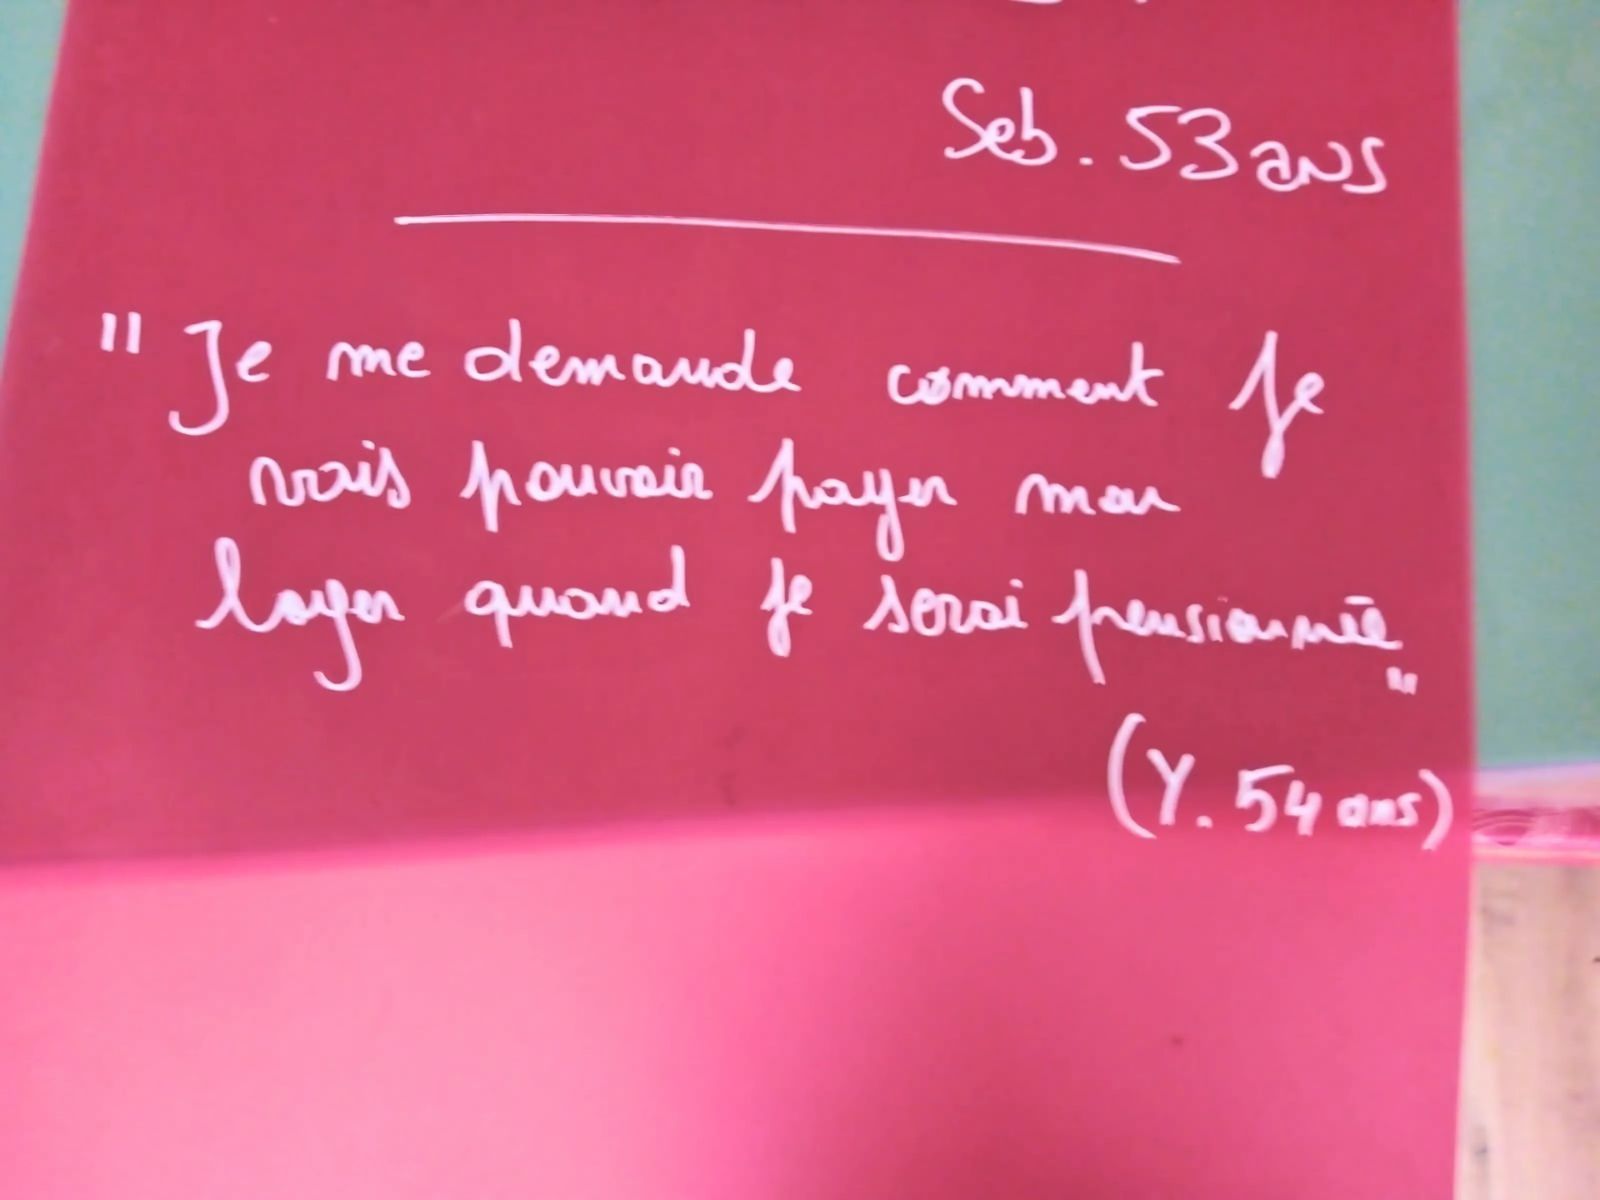 Seb. 53 ans
"Je me demande comment je
vais pouvoir payer mon
loyer quand je serai pensionnée"
(Y. 54 ans)